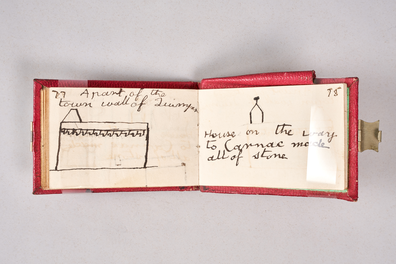 77 A part of the
town wall of Quimper
78
House on the way
to Carnac made
all of stone